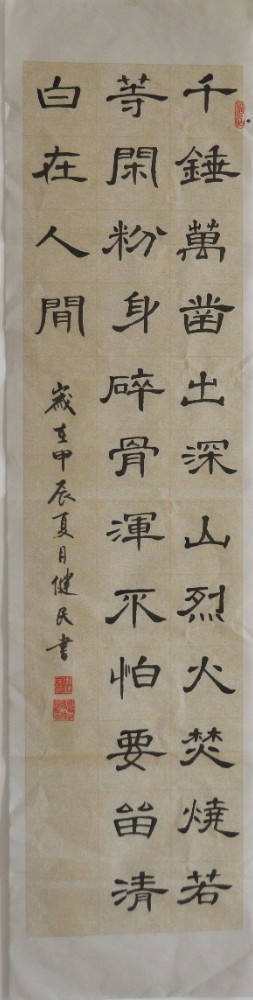 千錘萬凿出深山烈火焚燒若
等閑粉身碎骨渾不怕要留清
白在人間
歲在甲辰夏月健民書